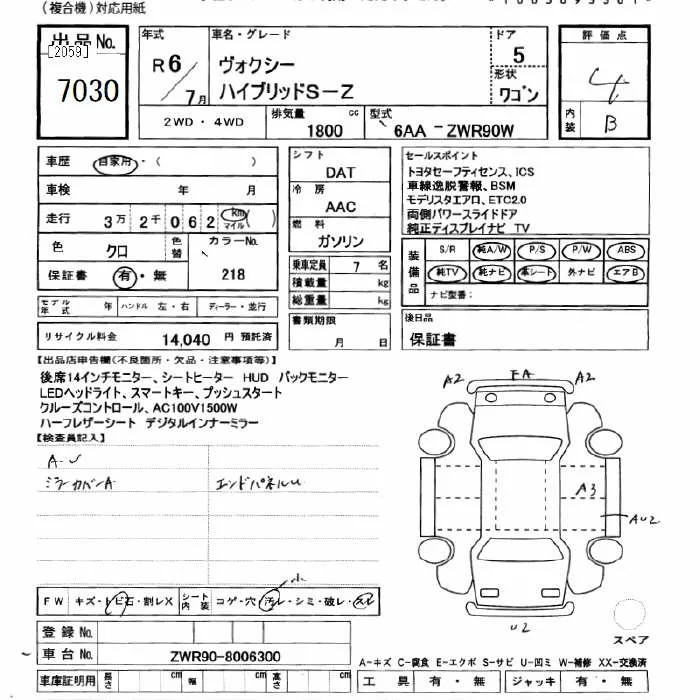 (複合機)対応用紙
出品No.
[2059]
7030
年式
R6/7月
車名・グレード
ヴォクシー
ハイブリッドS-Z
ドア
5
形状
ワゴン
評価点
4
内装
B
2WD・4WD
排気量
1800 cc
型式
6AA-ZWR90W
車歴 自家用・( )
車検 年 月
走行 3万 2千 0 6 2 km マイル ( )
色 クロ
色替
カラーNo.
218
保証書 有・無
モデル年式 年 ハンドル 左・右 ディーラー・並行
リサイクル料金 14,040 円 預託済
シフト
DAT
冷房
AAC
燃料
ガソリン
乗車定員 7 名
積載量 kg
総重量 kg
書類期限
月 日
セールスポイント
トヨタセーフティセンス、ICS
車線逸脱警報、BSM
モデリスタエアロ、ETC2.0
両側パワースライドドア
純正ディスプレイナビ TV
装備品
S/R 純A/W P/S P/W ABS
純TV 純ナビ 革シート 外ナビ エアB
ナビ型番:
後日品
保証書
【出品店申告欄(不良箇所・欠品・注意事項等)】
後席14インチモニター、シートヒーター HUD バックモニター
LEDヘッドライト、スマートキー、プッシュスタート
クルーズコントロール、AC100V1500W
ハーフレザーシート デジタルインナーミラー
【検査員記入】
A-U
ミラーカバーA
エンドパネルU
A2
EA
A2
A3
AU2
U2
スペア
小
FW キズ・トビ石・割レX
シート内装 コゲ・穴・汚レ・シミ・破レ・スレ
登録No.
車台No. ZWR90-8006300
車庫証明用 長さ cm 幅 cm 高さ cm
A-キズ C-腐食 E-エクボ S-サビ U-凹ミ W-補修 XX-交換済
工具 有・無 ジャッキ 有・無